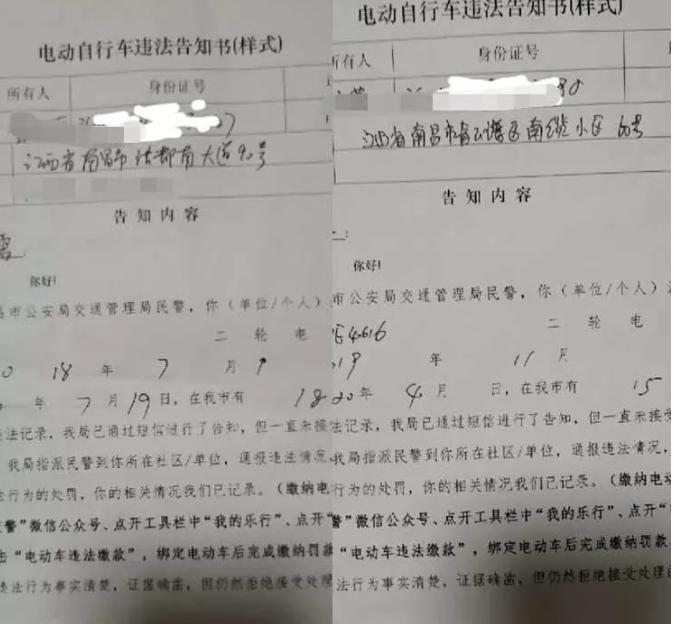 电动自行车违法告知书(样式)
所有人
身份证号
江西省南昌市洪都南大道90号
告知内容
你好!
市公安局交通管理局民警，你（单位/个人）
二轮电
18年7月
年7月19日，在我市有18
法记录，我局已通过短信进行了告知，但一直未接
我局指派民警到你所在社区/单位，通报违法情况
行为的处罚，你的相关情况我们已记录。（缴纳电
警”微信公众号、点开工具栏中“我的乐行”、点开“
“电动车违法缴款”，绑定电动车后完成缴纳罚款
违法行为事实清楚，证据确凿，但仍然拒绝接受处理
电动自行车违法告知书(样式)
有人
身份证号
江西省南昌市青云谱区南缆小区60号
告知内容
你好!
市公安局交通管理局民警，你（单位/个人）
E4616
二轮电
19年11月
20年4月日，在我市有15
法记录，我局已通过短信进行了告知，但一直未接受
我局指派民警到你所在社区/单位，通报违法情况，
行为的处罚，你的相关情况我们已记录。（缴纳电
警”微信公众号、点开工具栏中“我的乐行”、点开“
“电动车违法缴款”，绑定电动车后完成缴纳罚款
法行为事实清楚，证据确凿，但仍然拒绝接受处理的